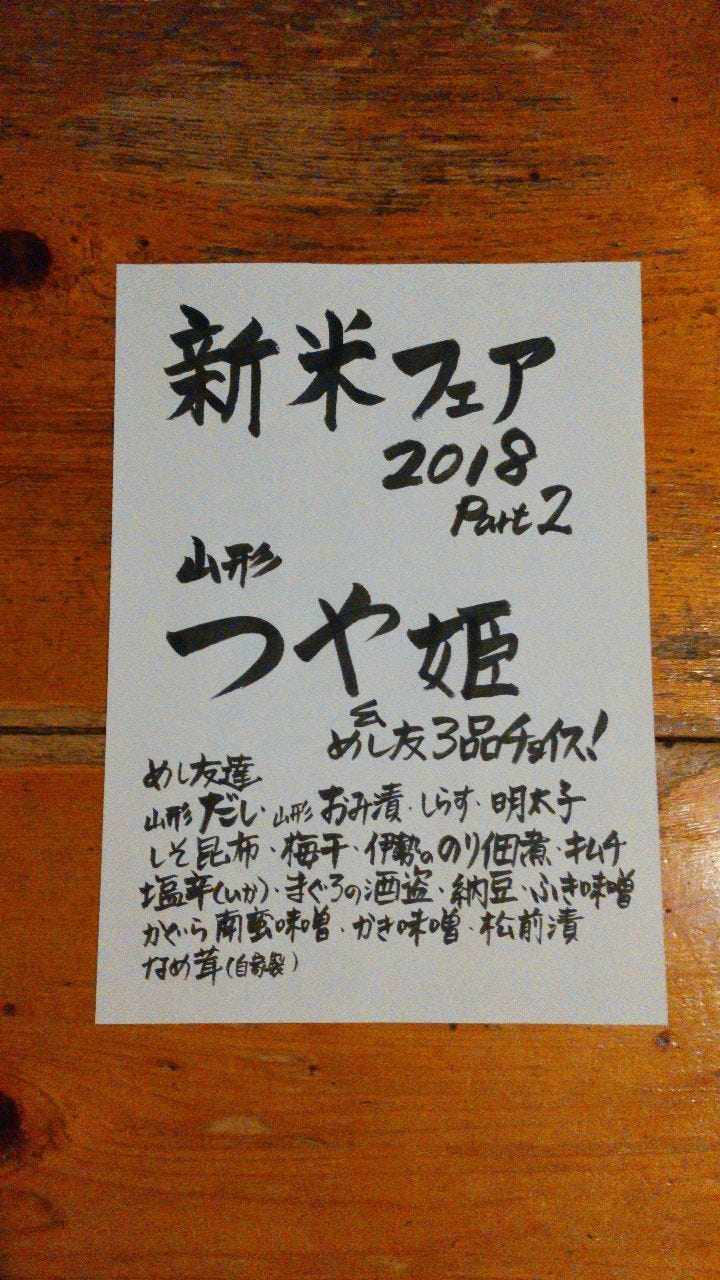 新米フェア
2018
Part2
山形
つや姫
めし友3品チョイス!
めし友達
山形だし・山形おみ漬・しらす・明太子
しそ昆布・梅干・伊勢ののり佃煮・キムチ
塩辛(いか)・まぐろの酒盗・納豆・ふき味噌
かぐら南蛮味噌・かき味噌・松前漬
なめ茸(自家製)